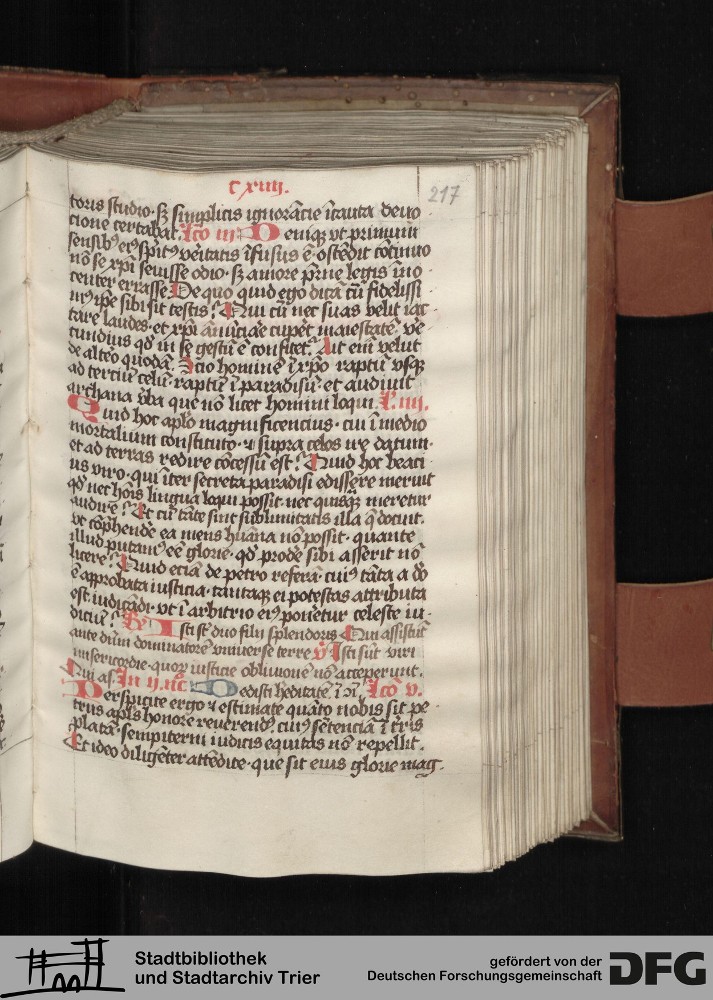 c xiiij.
217
toris studio· sʒ simplicis ignorācie īcauta deuo
cione certabat. lcō iij. Deniqʒ vt primum
sensibꝰ eiꝰ spirit⁹ veritatis īfusus ē· ostēdit cōtinuo
nō se xp̄i seruisse odio· sʒ amore p̄rne legis īno
center errasse De quo quid ego dicā cū fidelissi
mꝰ ipe sibi sit testis? Qui cū nec suas velit iac
tare laudes· et xp̄i ānūciāe cupēt maiestatē ve
cundius qd̄ in se gestū ē confitet². Ait enī velut
de alteo quodā. Scio hominē ī xp̄o raptū vsqʒ
ad terciū celū· raptū ī paradisū· et audiuit
archana v̄ba que nō licet homini loqui. l. iiij.
Quid hoc ap̄lo magnificencius· cui ī medio
mortalium constituto· ⁊ supra celos ire datum·
et ad terras redire cōcessū est? Quid hoc beaci
us viro· qui īter secreta paradisi edissere meruit
qd̄ nec hōis lingua loqui possit· nec quisqʒ meretur
audire? Et cū tāte sint sublimitatis illa q̄ docuit·
vt cōphende ea mens hūana nō possit· quante
illud putamꝰ eē glorie· qd̄ prodēe sibi asserit nō
licere? Quid eciā de petro referā· cuiꝰ tāta a dō
ē approbata iusticia· tantaqʒ ei potestas attributa
est iudicādi· vt ī arbitrio eiꝰ poneret̄ celeste iu·
diciū? Isti st̄ duo filij splendoris Qui assistūt
ante dūm dominatorē vniuerse terre v̄ Isti sūt viri
misericordie· quorꝝ iusticie obliuionē nō acceperunt.
Qui as. In ij. nōc. Dedisti heditatē. lcō v.
Perspicite ergo ⁊ estimate quāto nobis sit pe
trus apl̄s honore reuerendꝰ cuiꝰ sētenciā ī t̄ris
platā· sempiterni iudicis equitas nō repellit.
Et ideo diligēter attēdite· que sit eius glorie mag·
Stadtbibliothek
und Stadtarchiv Trier
gefördert von der
Deutschen Forschungsgemeinschaft
DFG